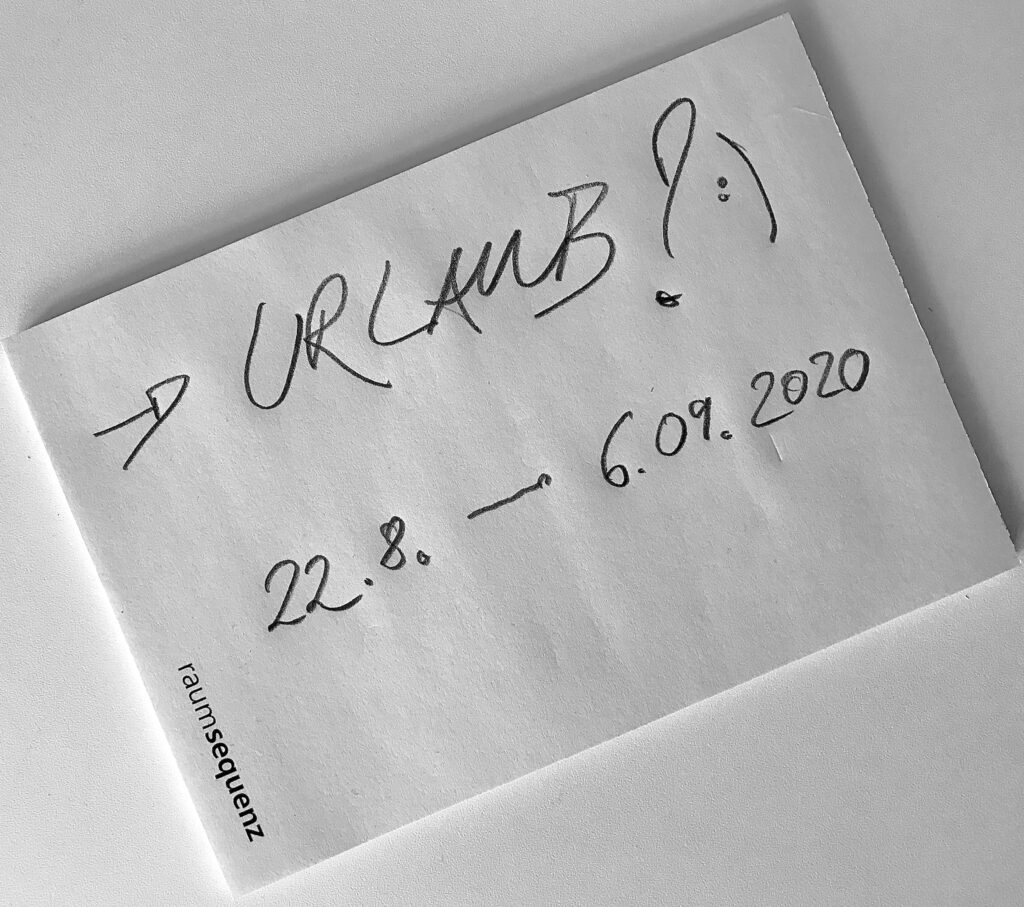 → URLAUB ? :)
22.8. — 6.09.2020
raumsequenz